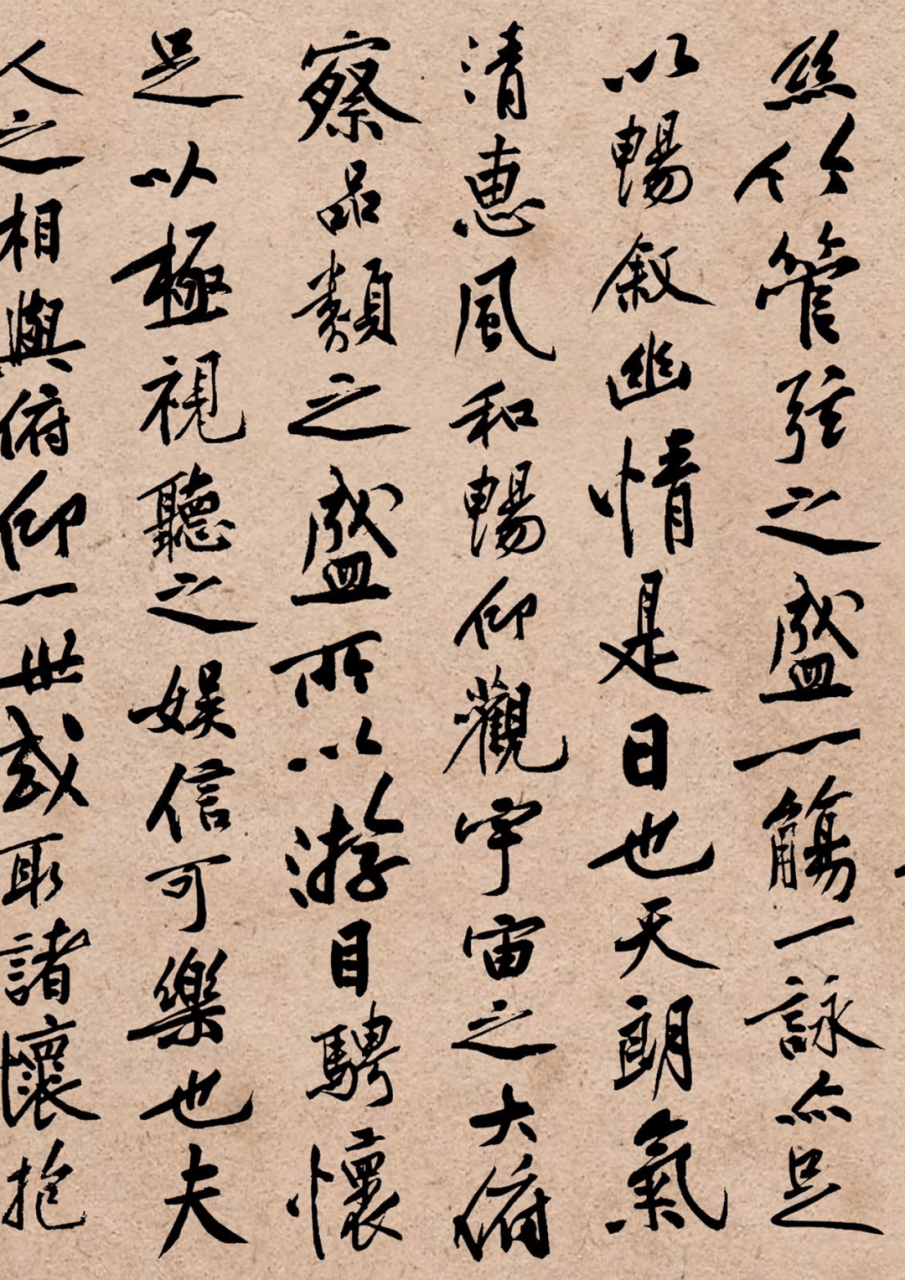 絲竹管弦之盛一觴一詠亦足
以暢敘幽情是日也天朗氣
清惠風和暢仰觀宇宙之大俯
察品類之盛所以游目騁懷
足以極視聽之娱信可樂也夫
人之相與俯仰一世或取諸懷抱